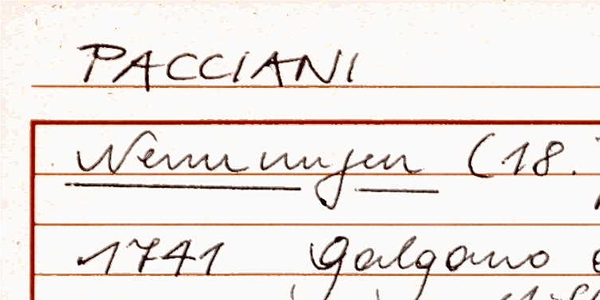 PACCIANI
Nennungen (18.
1741 Galgano